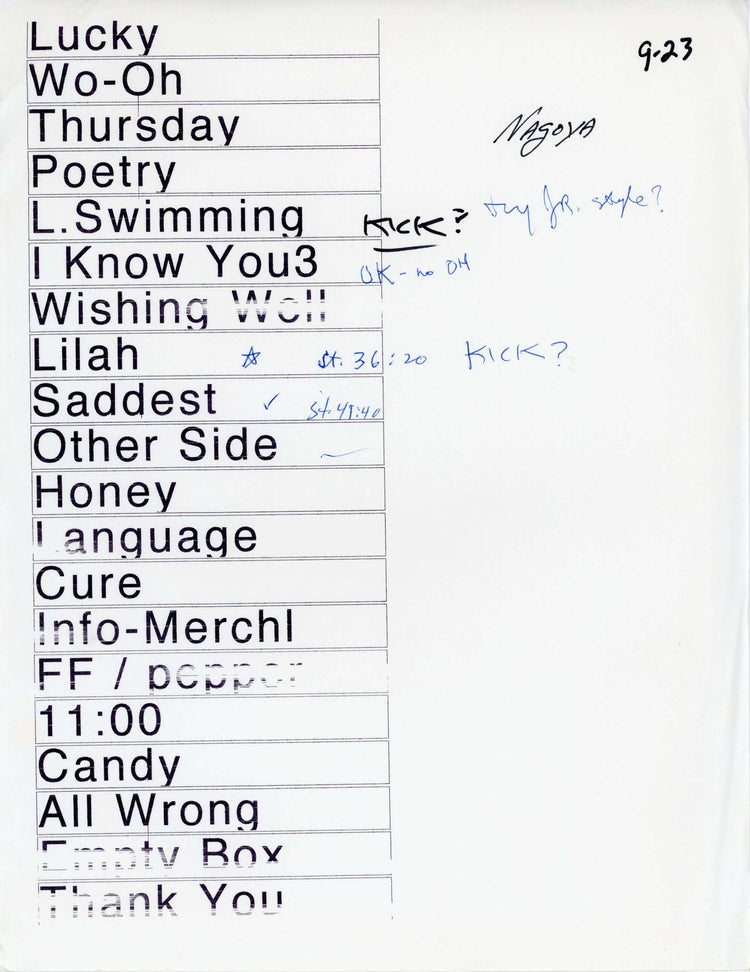 Lucky
9-23
Wo-Oh
Thursday
Nagoya
Poetry
L.Swimming KICK? try Jr. style?
I Know You3 OK - no OH
Wishing Well
Lilah ☆ st. 36:20 KICK?
Saddest ✓ st. 41:40
Other Side
Honey
Language
Cure
Info-Merchl
FF / pepper
11:00
Candy
All Wrong
Empty Box
Thank You